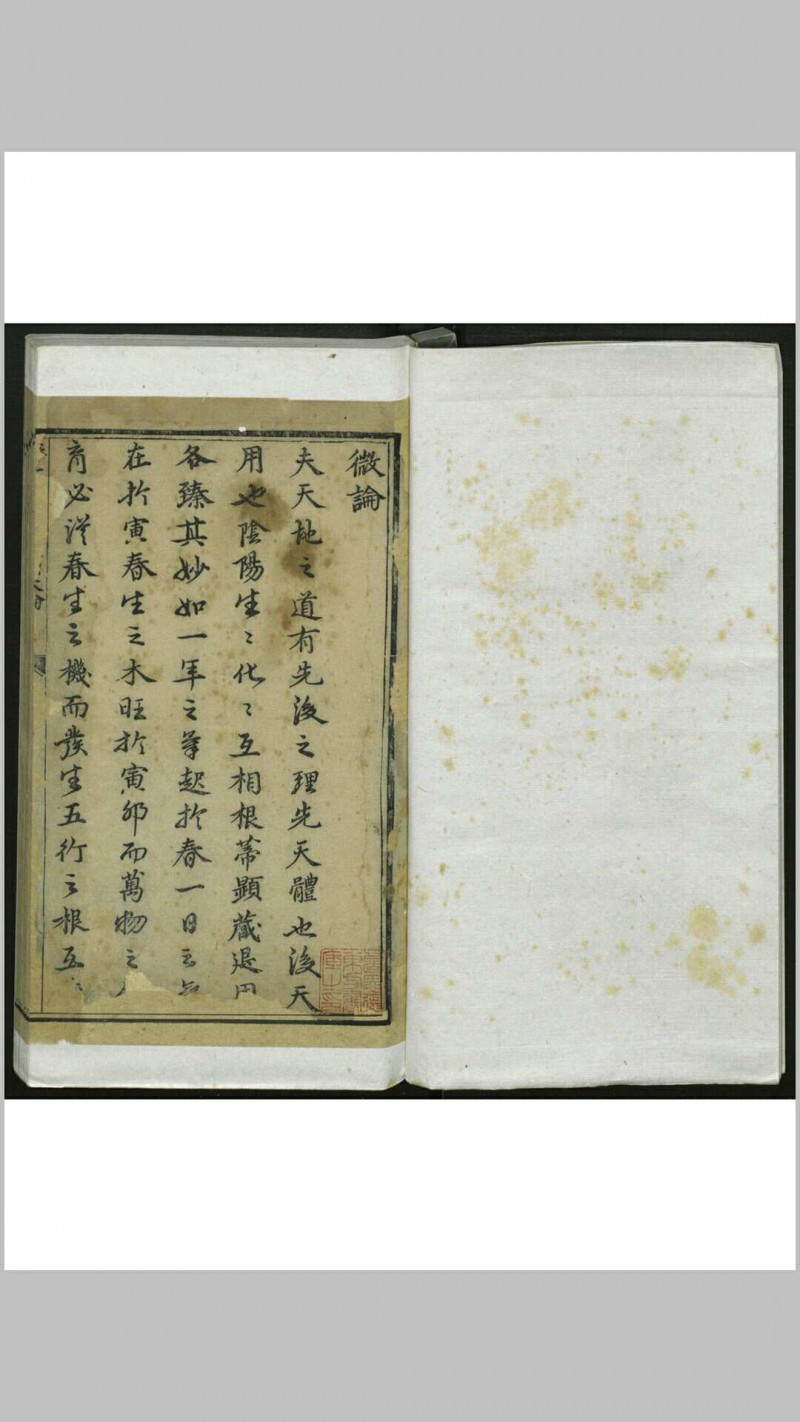 微論
夫天地之道有先後之理先天體也後天
用也陰陽生〻化〻互相根蒂顯藏退
各臻其妙如一年之筭起於春一日之
在於寅春生之木旺於寅卯而萬物之
育必從春生之機而發生五行之根五